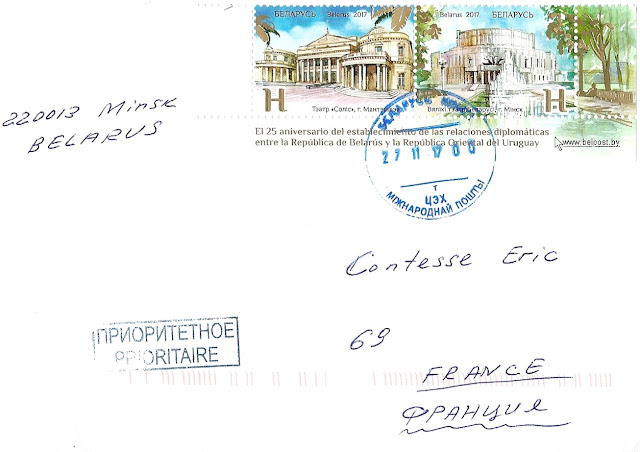 БЕЛАРУСЬ Belarus 2017
Belarus 2017 БЕЛАРУСЬ
H
Тэатр «Соліс», г. Мантэвідэа
H
El 25 aniversario del establecimiento de las relaciones diplomáticas
entre la República de Belarús y la República Oriental del Uruguay
www.belpost.by
220013 Minsk
BELARUS
БЕЛАРУСЬ
27 11 17 00
Т
ЦЭХ
МІЖНАРОДНАЙ ПОШТЫ
Contesse Eric
69
FRANCE
ФРАНЦИЯ
ПРИОРИТЕТНОЕ
PRIORITAIRE